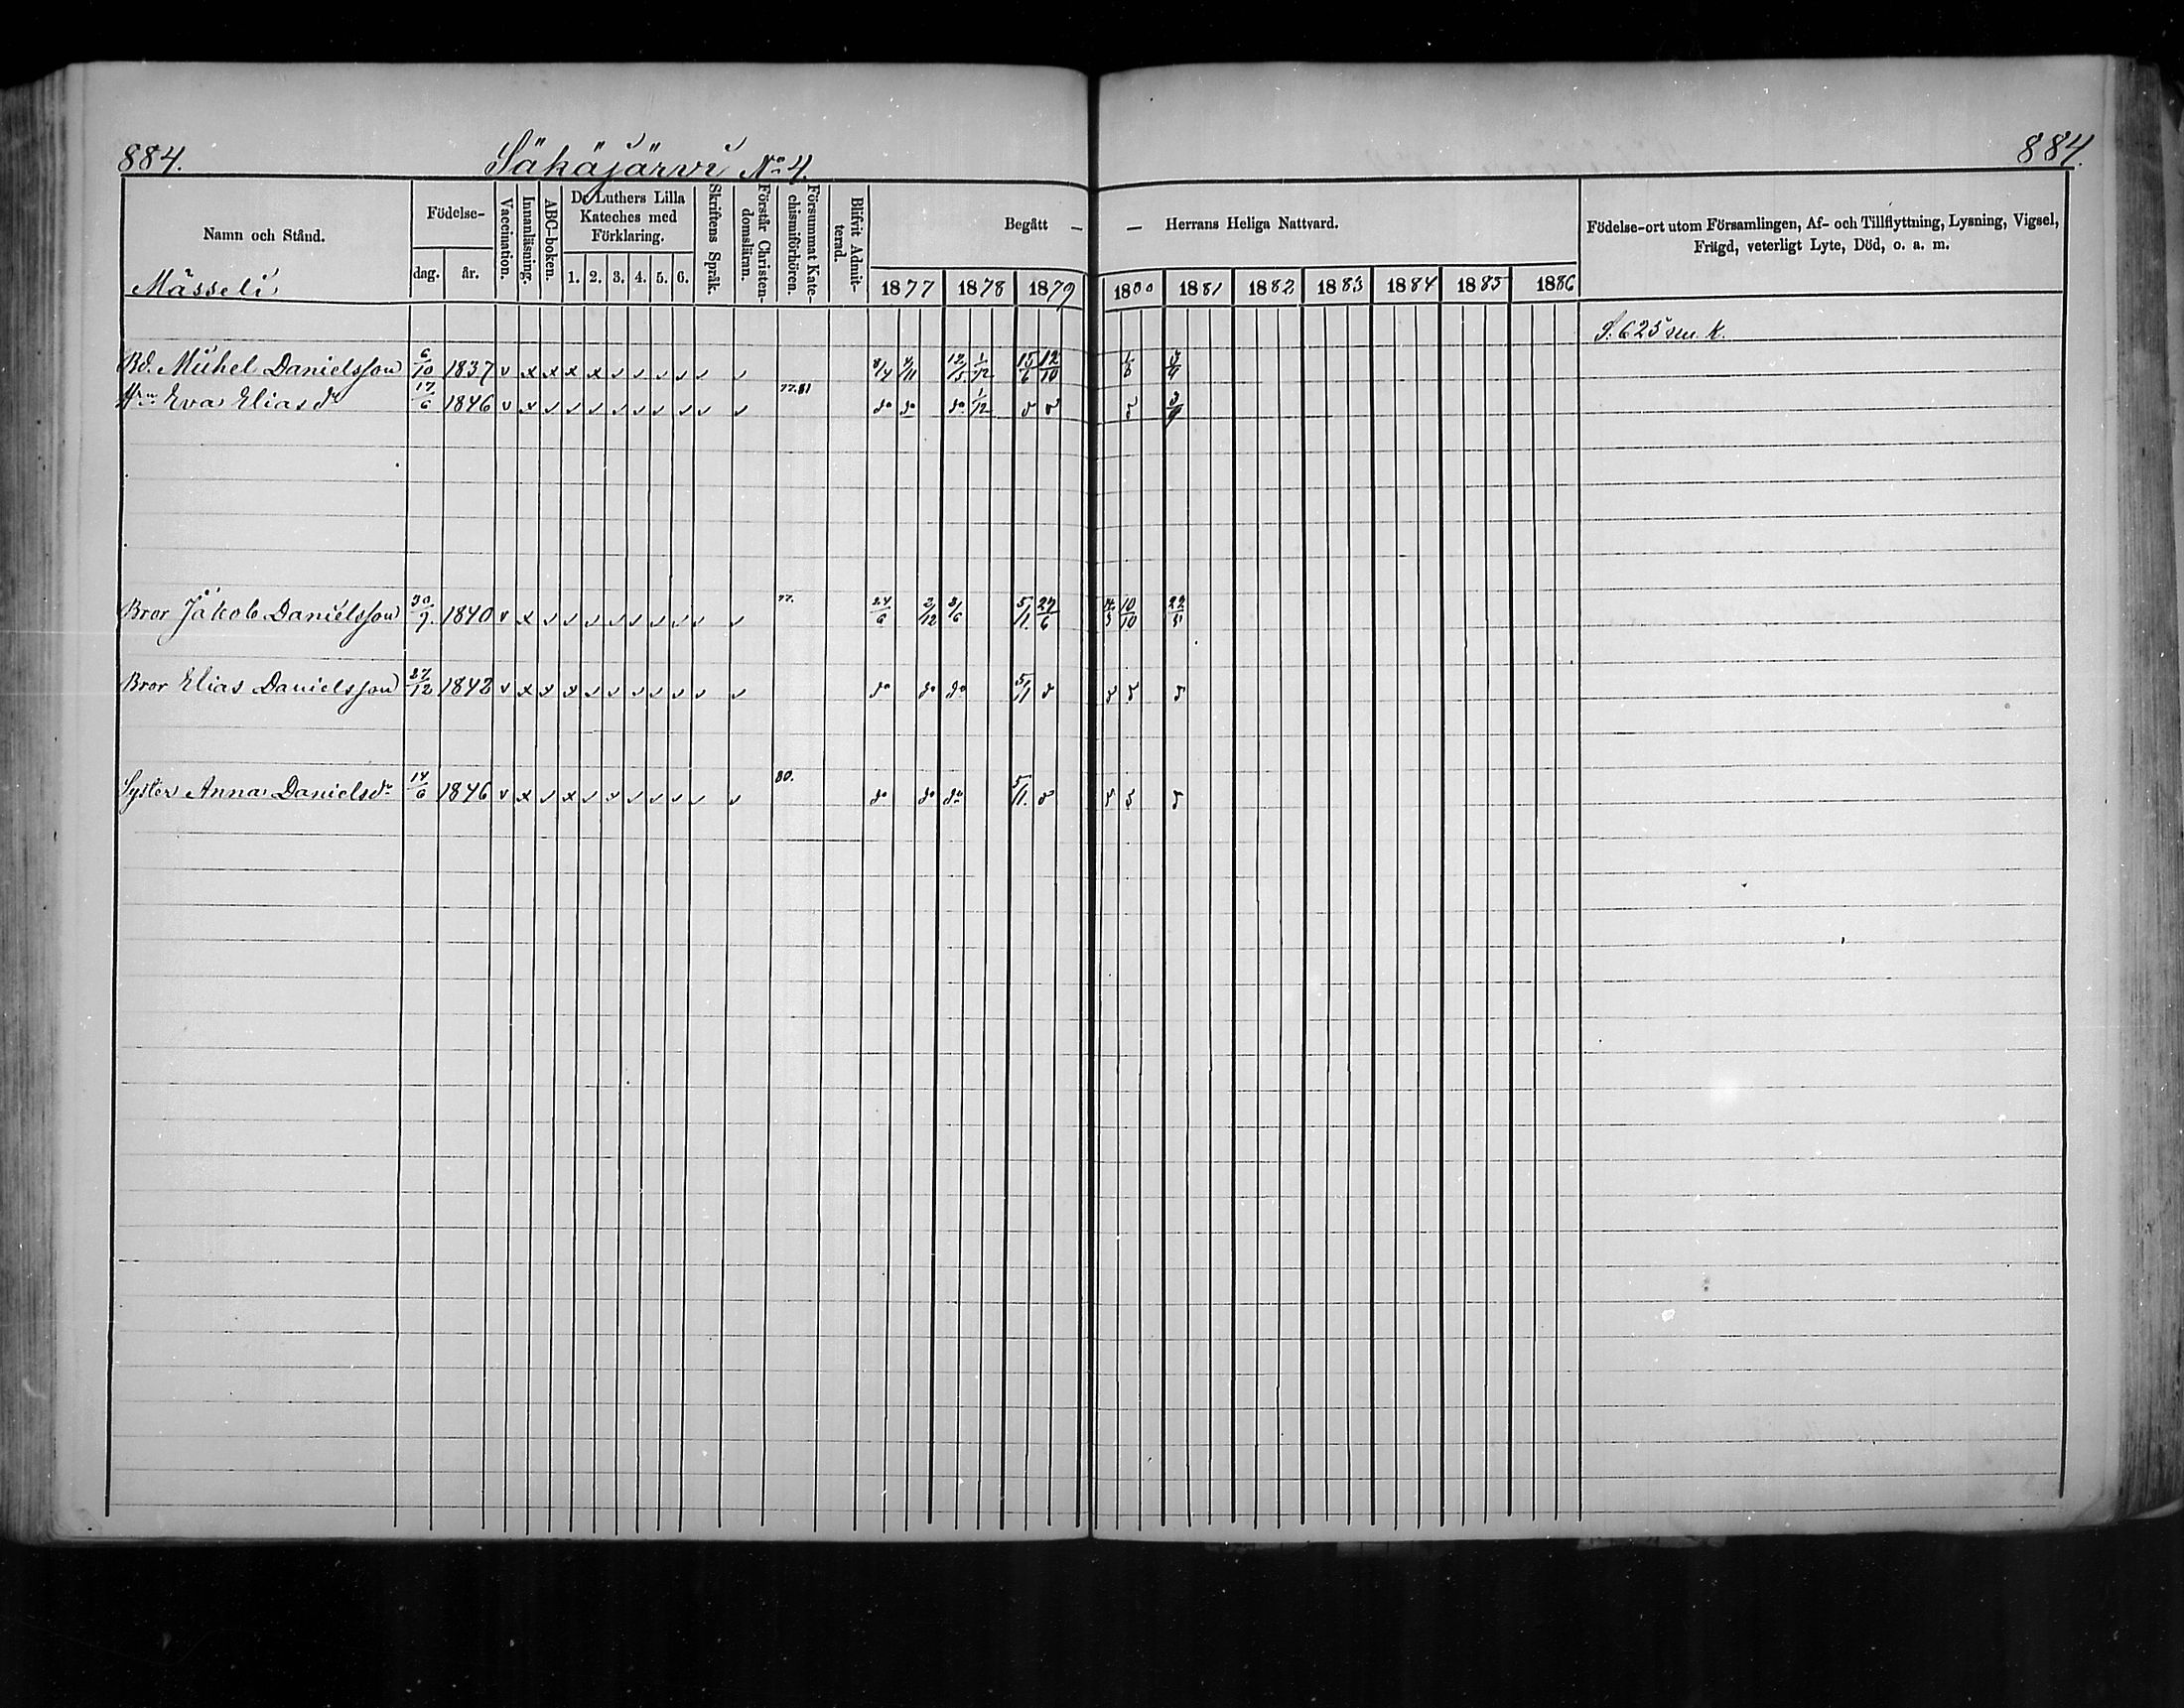 884. Sähäjärvi No 4. 884.
Namn och Stånd. Födelse- dag. år. Vaccination. Innanläsning. ABC-boken. D:r Luthers Lilla Kateches med Förklaring. 1. 2. 3. 4. 5. 6. Skriftens Språk. Förstår Christendomsläran. Försummat Katechismiförhören. Blifvit Admitterad. Begått — — Herrans Heliga Nattvard. Födelse-ort utom Församlingen, Af- och Tillflyttning, Lysning, Vigsel, Frägd, veterligt Lyte, Död, o. a. m.
Mässeli 1877 1878 1879 1880 1881 1882 1883 1884 1885 1886
S. 625 sm. k.
Bd. Michel Danielsson 6/10 1837 v x x x x v v v v v v 8/4 4/11 12/5 1/12 15/6 12/10
77. 81
Hu Eva Elias dr 17/6 1846 v x v v v v v v v v v do do do 1/12 d d
77.
Bror Jakob Danielsson 30/9 1840 v x v v v v v v v v v 24/6 2/12 9/6 5/11. 27/6 10/10 22/5
Bror Elias Danielsson 27/12 1842 v x x x v v v v v v v do do do 5/11 d d d d
80.
Syster Anna Danielsdr 14/6 1846 v x v x v v v v v v v do do do 5/11. d d d d